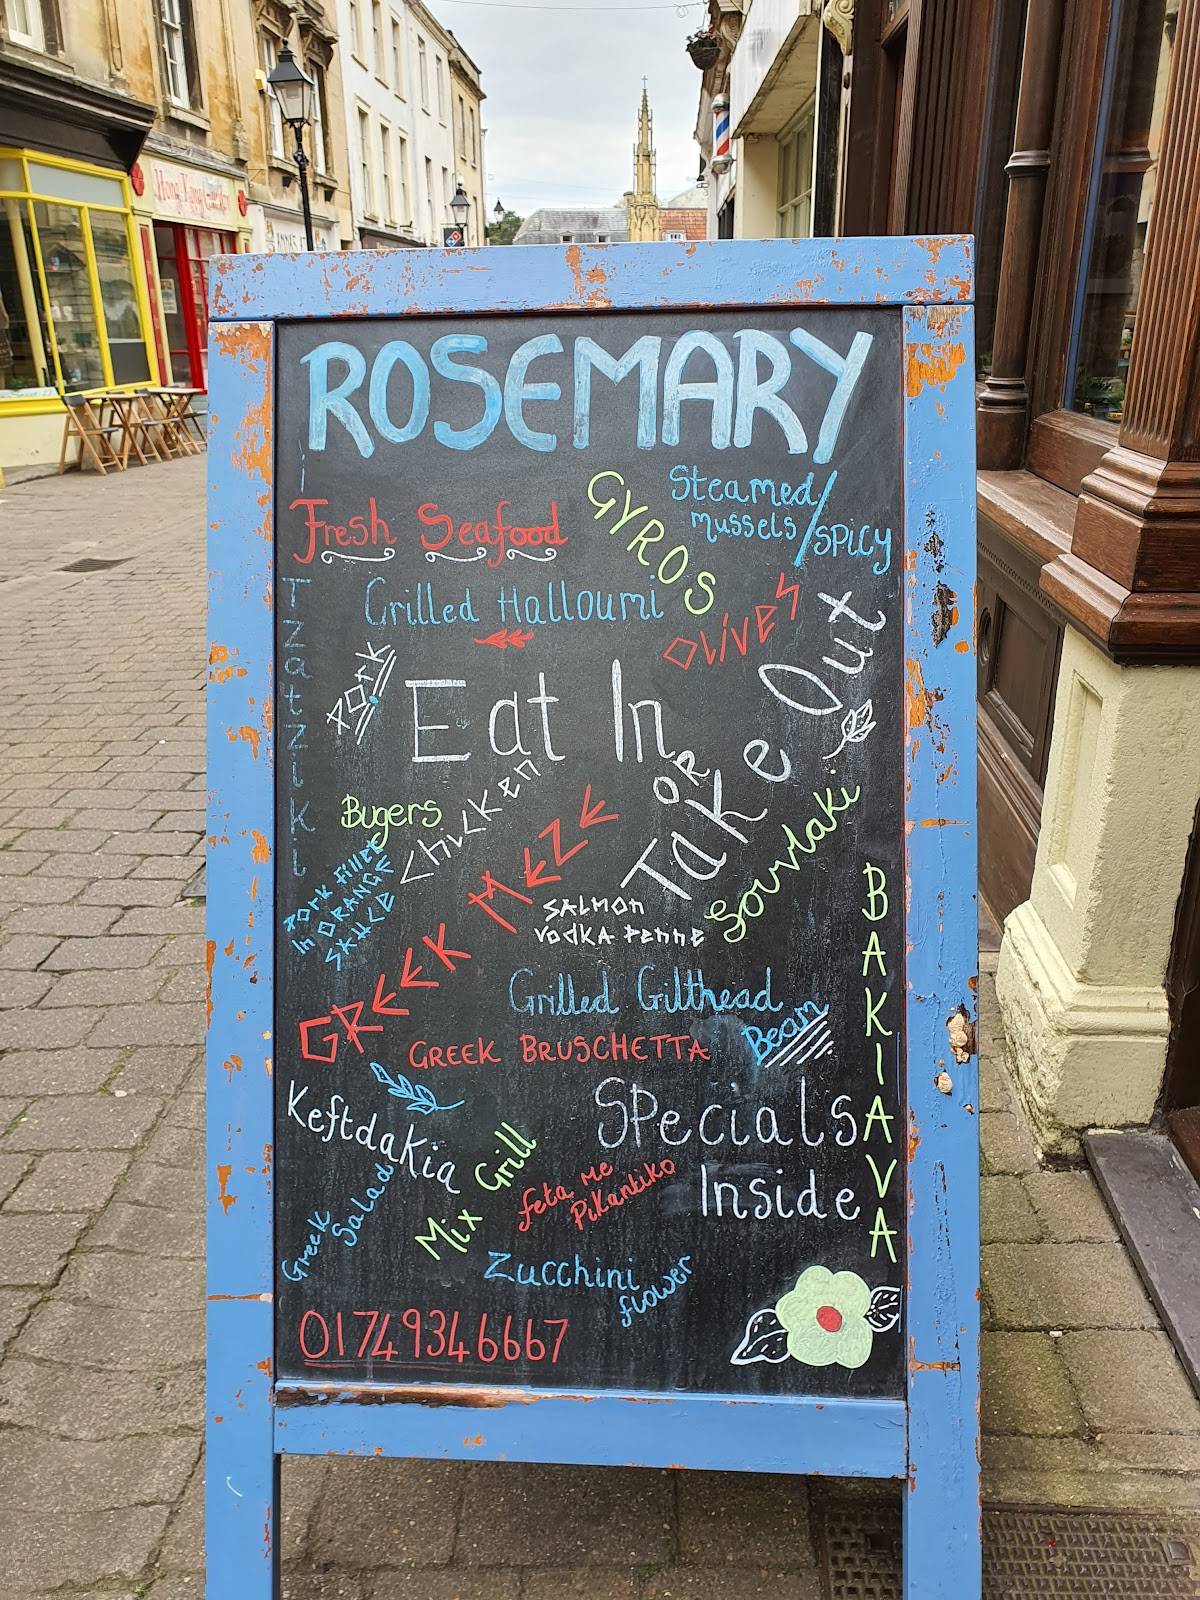 ROSEMARY
Fresh Seafood
GYROS
Steamed/
mussels/SPICY
Grilled Halloumi
OLIVES
TZatZIKI
PORK
Eat In
OR
Take Out
Bugers
Chicken
Pork fillet
In ORANGE
SAUCE
GREEK MEZE
SALMON
VODKA Penne
Souvlaki
BAKIAVA
Grilled Gilthead
Beam
GREEK BRUSCHETTA
KeftdaKia
Specials
Inside
Greek
Salad
Mix Grill
feta me
PiKantiko
Zucchini
flower
01749346667